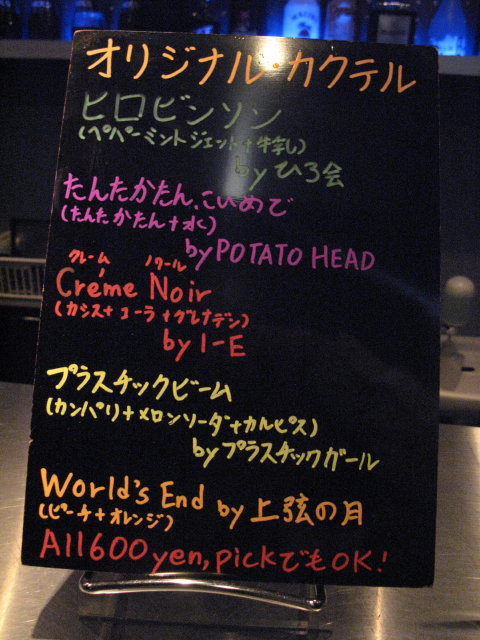 オリジナル・カクテル
ヒロビンソン
(ペパーミントジェット+牛乳)
by ひろ会
たんたかたん、こいめで
(たんたかたん+水)
by POTATO HEAD
クレーム ノワール
Créme Noir
(カシス+コーラ+グレナデン)
by I-E
プラスチックビーム
(カンパリ+メロンソーダ+カルピス)
by プラスチックガール
World's End by 上弦の月
(ピーチ+オレンジ)
All 600 yen, pickでもOK!